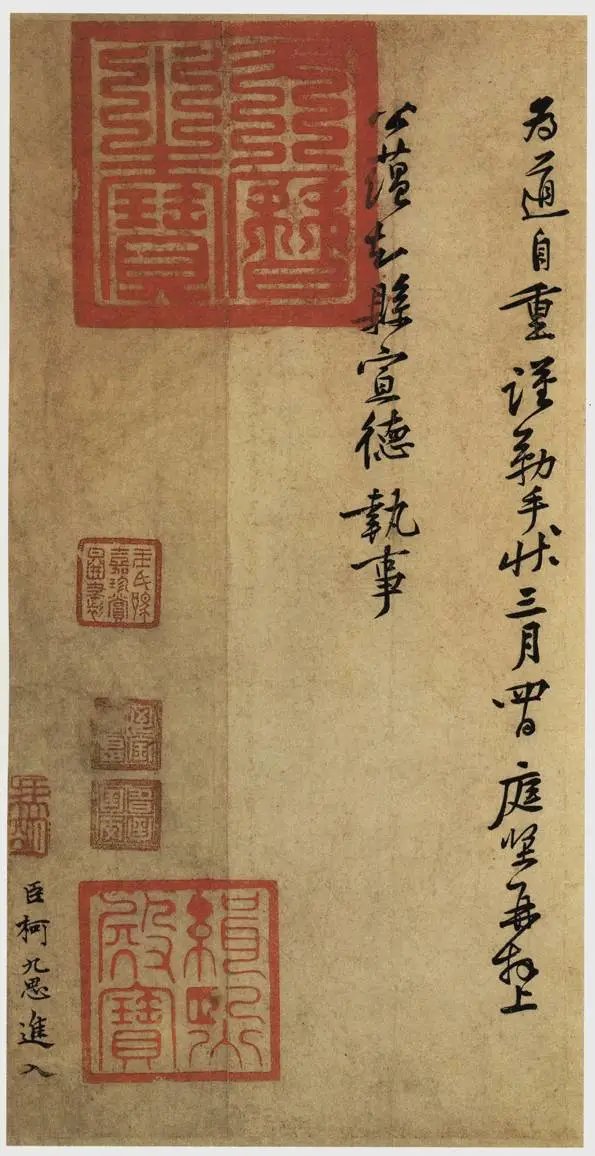 為道自重謹勒手狀三月四日庭堅再拜上
公蘊知縣宣德執事
天曆之寶
緝熙殿寶
臣柯九思進入